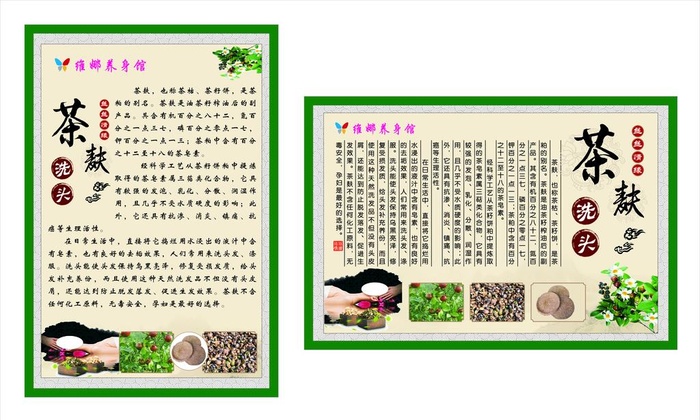 维娜养身馆
茶麸
洗头
茶麸，也称茶枯、茶籽饼，是茶
籽的别名。茶麸是油茶籽榨油后的剩
产品，其含有机百分之八十二，氮百
分之一点三七，磷百分之零点一七，
钾百分之一点一三；茶籽中含有百分
之十二至十八的茶皂素。
经科学工艺从茶籽饼粕中提炼
取得的茶皂素属三萜类化合物，它具
有较强的发泡、乳化、分散、润湿作
用，且几乎不受水质硬度的影响；此
外，它还具有抗渗、消炎、镇痛、抗
癌等生理活性。
在日常生活中，直接将它捣烂用水浸出的液汁中含
有皂素，也有良好的去垢效果，人们常用来洗头发、涤
服。洗头能使头发保持乌黑亮泽，修复受损发质，给头
发补充养份，而且使用这种天然洗发品不但没有头皮
屑，还能达到防止脱发落发、促进生发效果。茶麸不含
任何化工原料，无毒安全，孕妇是最好的选择。
维娜养身馆
茶麸
洗头
茶麸，也称茶枯、茶籽饼，是茶
粕的别名。茶麸是油茶籽榨油后的剩
产品，其含有机百分之八十二，氮百
分之一点三七，磷百分之零点一七，
钾百分之一点一三；茶粕中含有百分
之十二至十八的茶皂素。
经科学工艺从茶籽饼粕中提炼取
得的茶皂素属三萜类化合物，它具有
较强的发泡、乳化、分散、润湿作
用，且几乎不受水质硬度的影响；此
外，它还具有抗渗、消炎、镇痛、抗
癌等生理活性。
在日常生活中，直接将它捣烂用
水浸出的液汁中含有皂素，也有良好
的去垢效果，人们常用来洗头发、涤
服。洗头能使头发保持乌黑亮泽，修
复受损发质，给头发补充养份，而且
使用这种天然洗发品不但没有头皮
屑，还能达到防止脱发落发、促进生
发效果。茶麸不含任何化工原料，无
毒安全，孕妇是最好的选择。